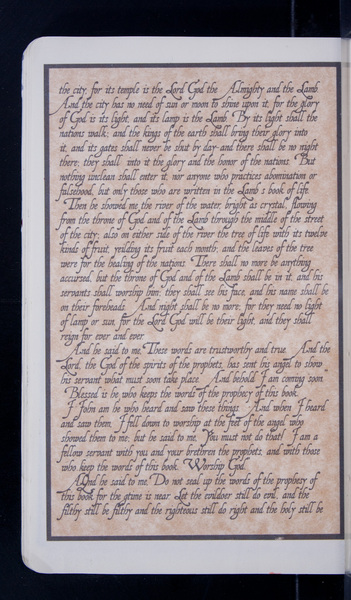 the city, for its temple is the Lord God the Almighty and the Lamb.
And the city has no need of sun or moon to shine upon it, for the glory
of God is its light, and its lamp is the Lamb. By its light shall the
nations walk; and the kings of the earth shall bring their glory into
it, and its gates shall never be shut by day-and there shall be no night
there; they shall into it the glory and the honor of the nations. But
nothing unclean shall enter it, nor anyone who practices abomination or
falsehood, but only those who are written in the Lamb's book of life.
Then he showed me the river of the water, bright as crystal, flowing
from the throne of God and of the Lamb through the middle of the street
of the city; also on either side of the river the tree of life with its twelve
kinds of fruit, yeilding its fruit each month; and the leaves of the tree
were for the healing of the nations. There shall no more be anything
accursed, but the throne of God and of the Lamb shall be in it, and his
servants shall worship him; they shall see his face, and his name shall be
on their foreheads. And night shall be no more; for they need no light
of lamp or sun, for the Lord God will be their light, and they shall
reign for ever and ever.
And he said to me, "These words are trustworthy and true. And the
Lord, the God of the spirits of the prophets, has sent his angel to show
his servant what must soon take place. And behold, I am coming soon."
Blessed is he who keeps the words of the prophecy of this book.
I John am he who heard and saw these things. And when I heard
and saw them, I fell down to worship at the feet of the angel who
showed them to me; but he said to me, "You must not do that! I am a
fellow servant with you and your brethren the prophets, and with those
who keep the words of this book. Worship God."
And he said to me, "Do not seal up the words of the prophesy of
this book, for the time is near. Let the evildoer still do evil, and the
filthy still be filthy and the righteous still do right and the holy still be